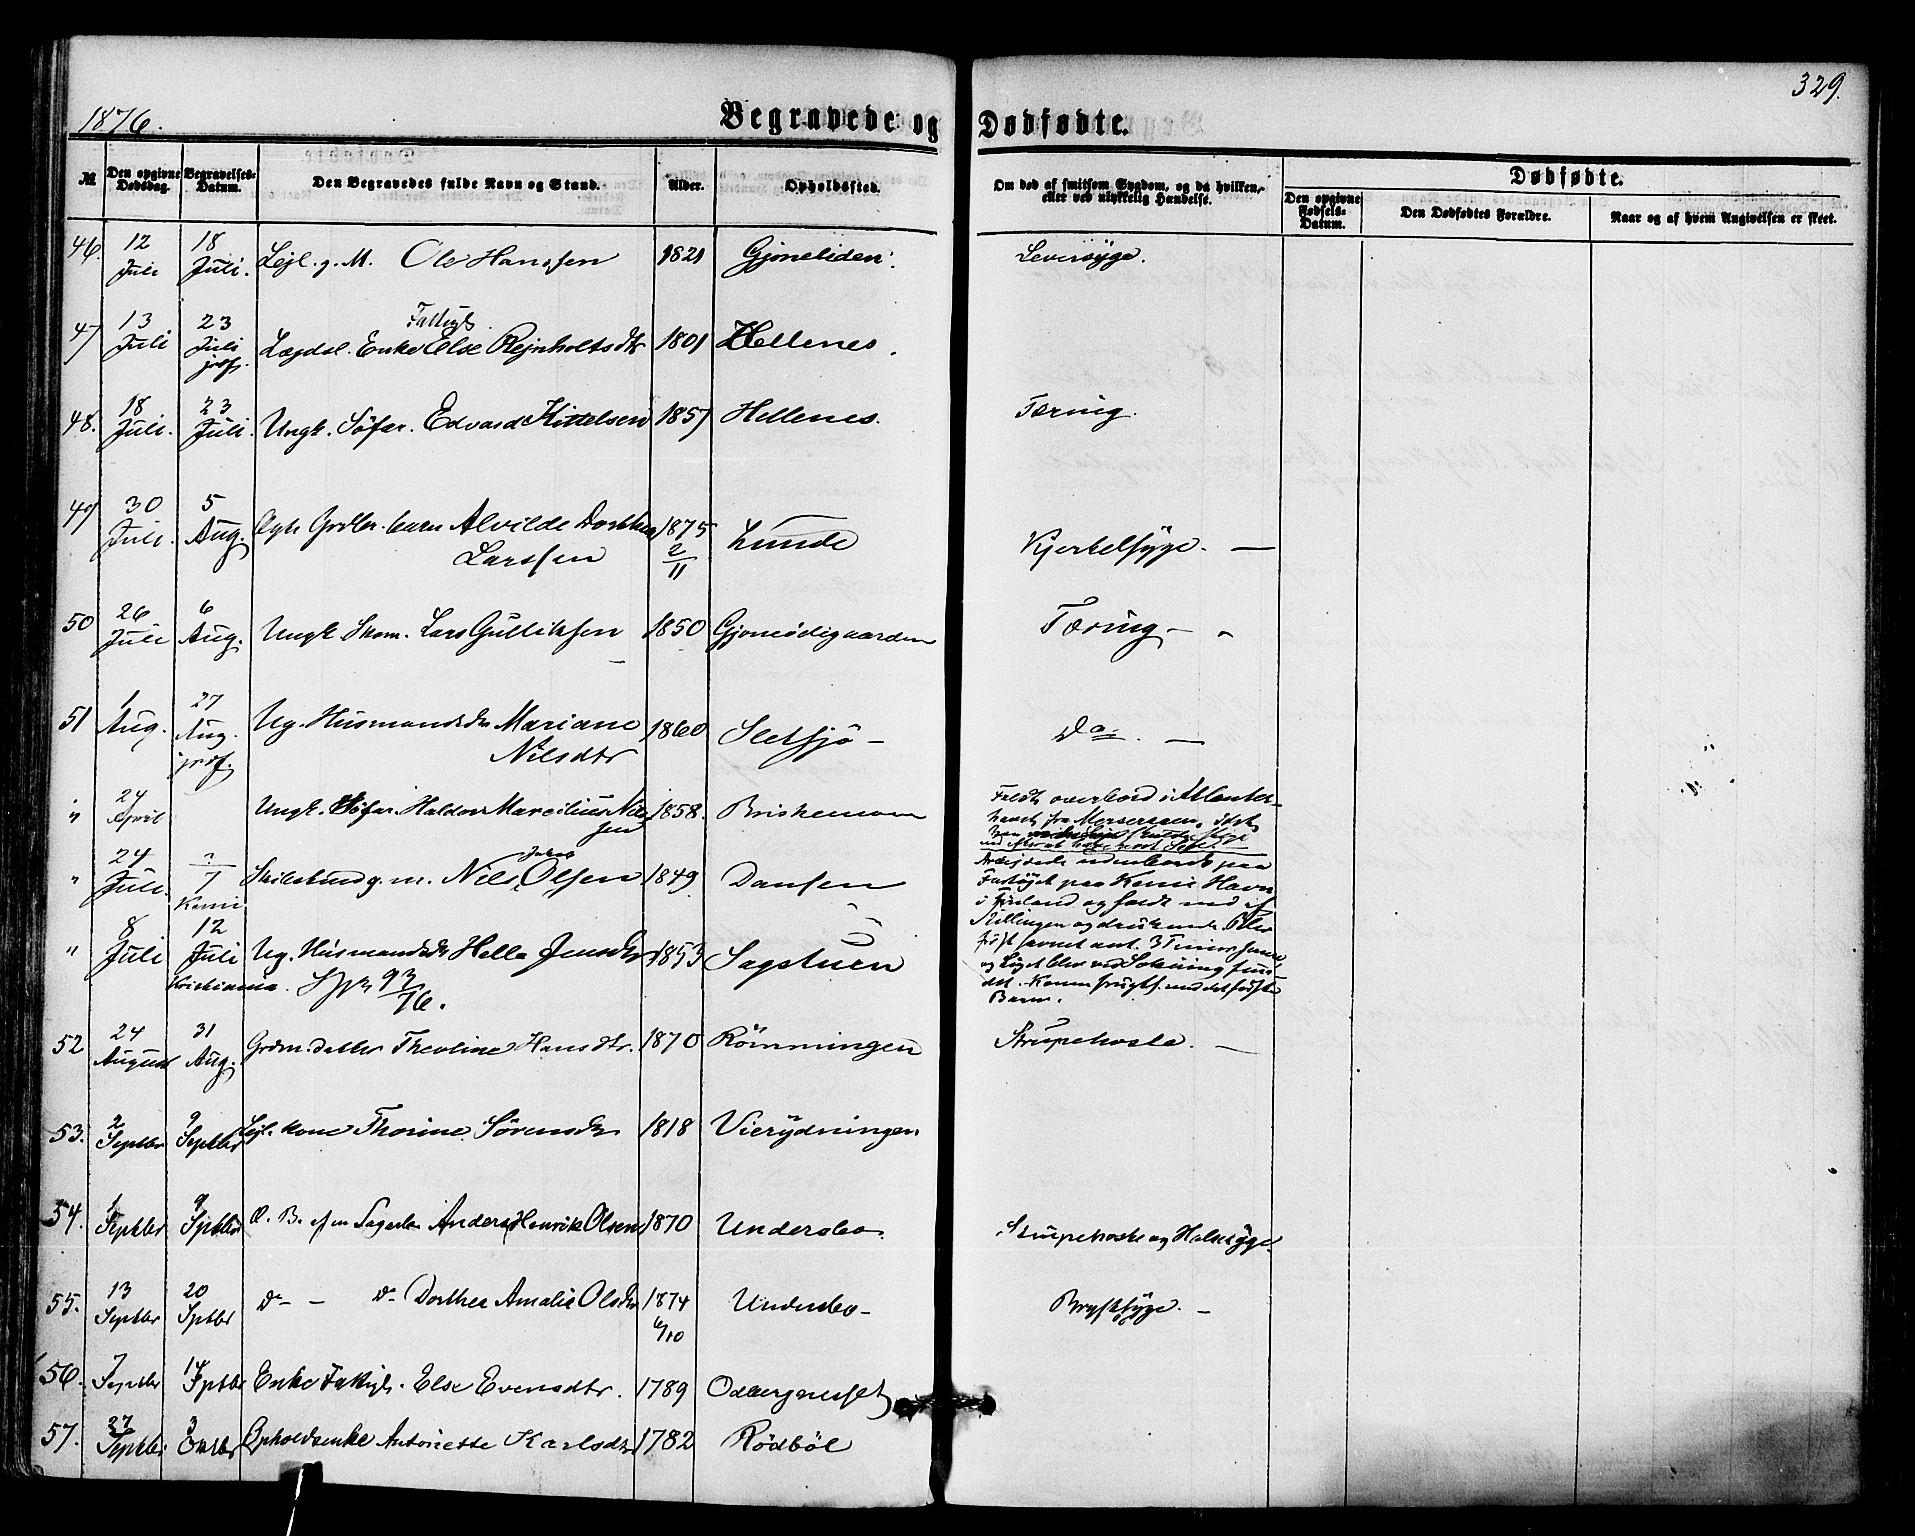 1876.
Begravede og Dødfødte.
329.
№
Den opgivne Dødsdag.
Begravelses-Datum.
Den Begravedes fulde Navn og Stand.
Alder.
Opholdssted.
Om død af smitsom Sygdom, og da hvilken, eller ved ulykkelig Hændelse.
Dødfødte.
Den opgivne Fødsels-Datum.
Den Dødfødtes Forældre.
Naar og af hvem Angivelsen er skeet.
46. 12 Juli 18 Juli. Lejl. g. M. Ole Hanssen 1821 Gjoneliden. Leversyge.
47 13 Juli 23 Juli jrdf. Lægdsl. Enke Fattigl. Else Rejnholtsdtr 1801 Hellenes.
48. 18 Juli. 23 Juli. Ungk. Söfar. Edvard Kittelsen 1857 Hellenes. Tæring.
49 30 Juli. 5 Aug. Ægte Grdbr. barn Alvilde Dorthea 1875 Lunde Kjertelsyge. —
Larssen 2/11
50 26 Juli 6 Aug. Ungk. Skom. Lars Gulliksen 1850 Gjonnödigaarden Tæring — "
51 1 Aug. 27 Aug. jrdf. Ug. Husmandsdtr Mariane 1860 Sletsjö — Do. —
Nilsdtr
" 24 April Ungk. Söfar. Haldor Marcilius Nilssen 1858. Briskemoen Faldt overbord i Atlanter-
havet fra
" 24 Juli. 7 Kemi g. m. Nils Jakob Olsen 1849 Dansen
Arbejdede udenbords paa
Fartöjet paa Kemi Havn
i Finland og faldt ned af
Stillingen og druknede. Blev
först savnet omt. 3 Timer senere
og Liget blev ved Sokning fun-
det.
" 8 Juli 12 Juli Kristiania. Ug. Husmandsdtr Helle Jensdtr 1853 Sagstuen
93/76.
Barn.
52 24 August 31 Aug. Grdm. datter Theoline Hansdtr. 1870 Römmingen Strupehoste. —
53. 2 Septbr 9 Septbr Lejl. kone Thorine Sörensdtr 1818 Vierydningen
54. 1 Septbr 9 Septbr Æ. B. af en Sagarb. Anders Henrik Olsen 1870 Undersbo. Strupehoste og Halssyge.
55. 13 Septbr 20 Sptbr do — — do Dorthea Amalie Olsdtr 1874 6/10 Undersbo — Brystsyge. —
56. 7 Septbr 14 Sptbr Enke Fattigl. Else Evensdtr. 1789 Odbergnesset
57. 27 Septbr 3 Oktbr Opholdsenke Antonette Karlsdtr 1782 Rödböl